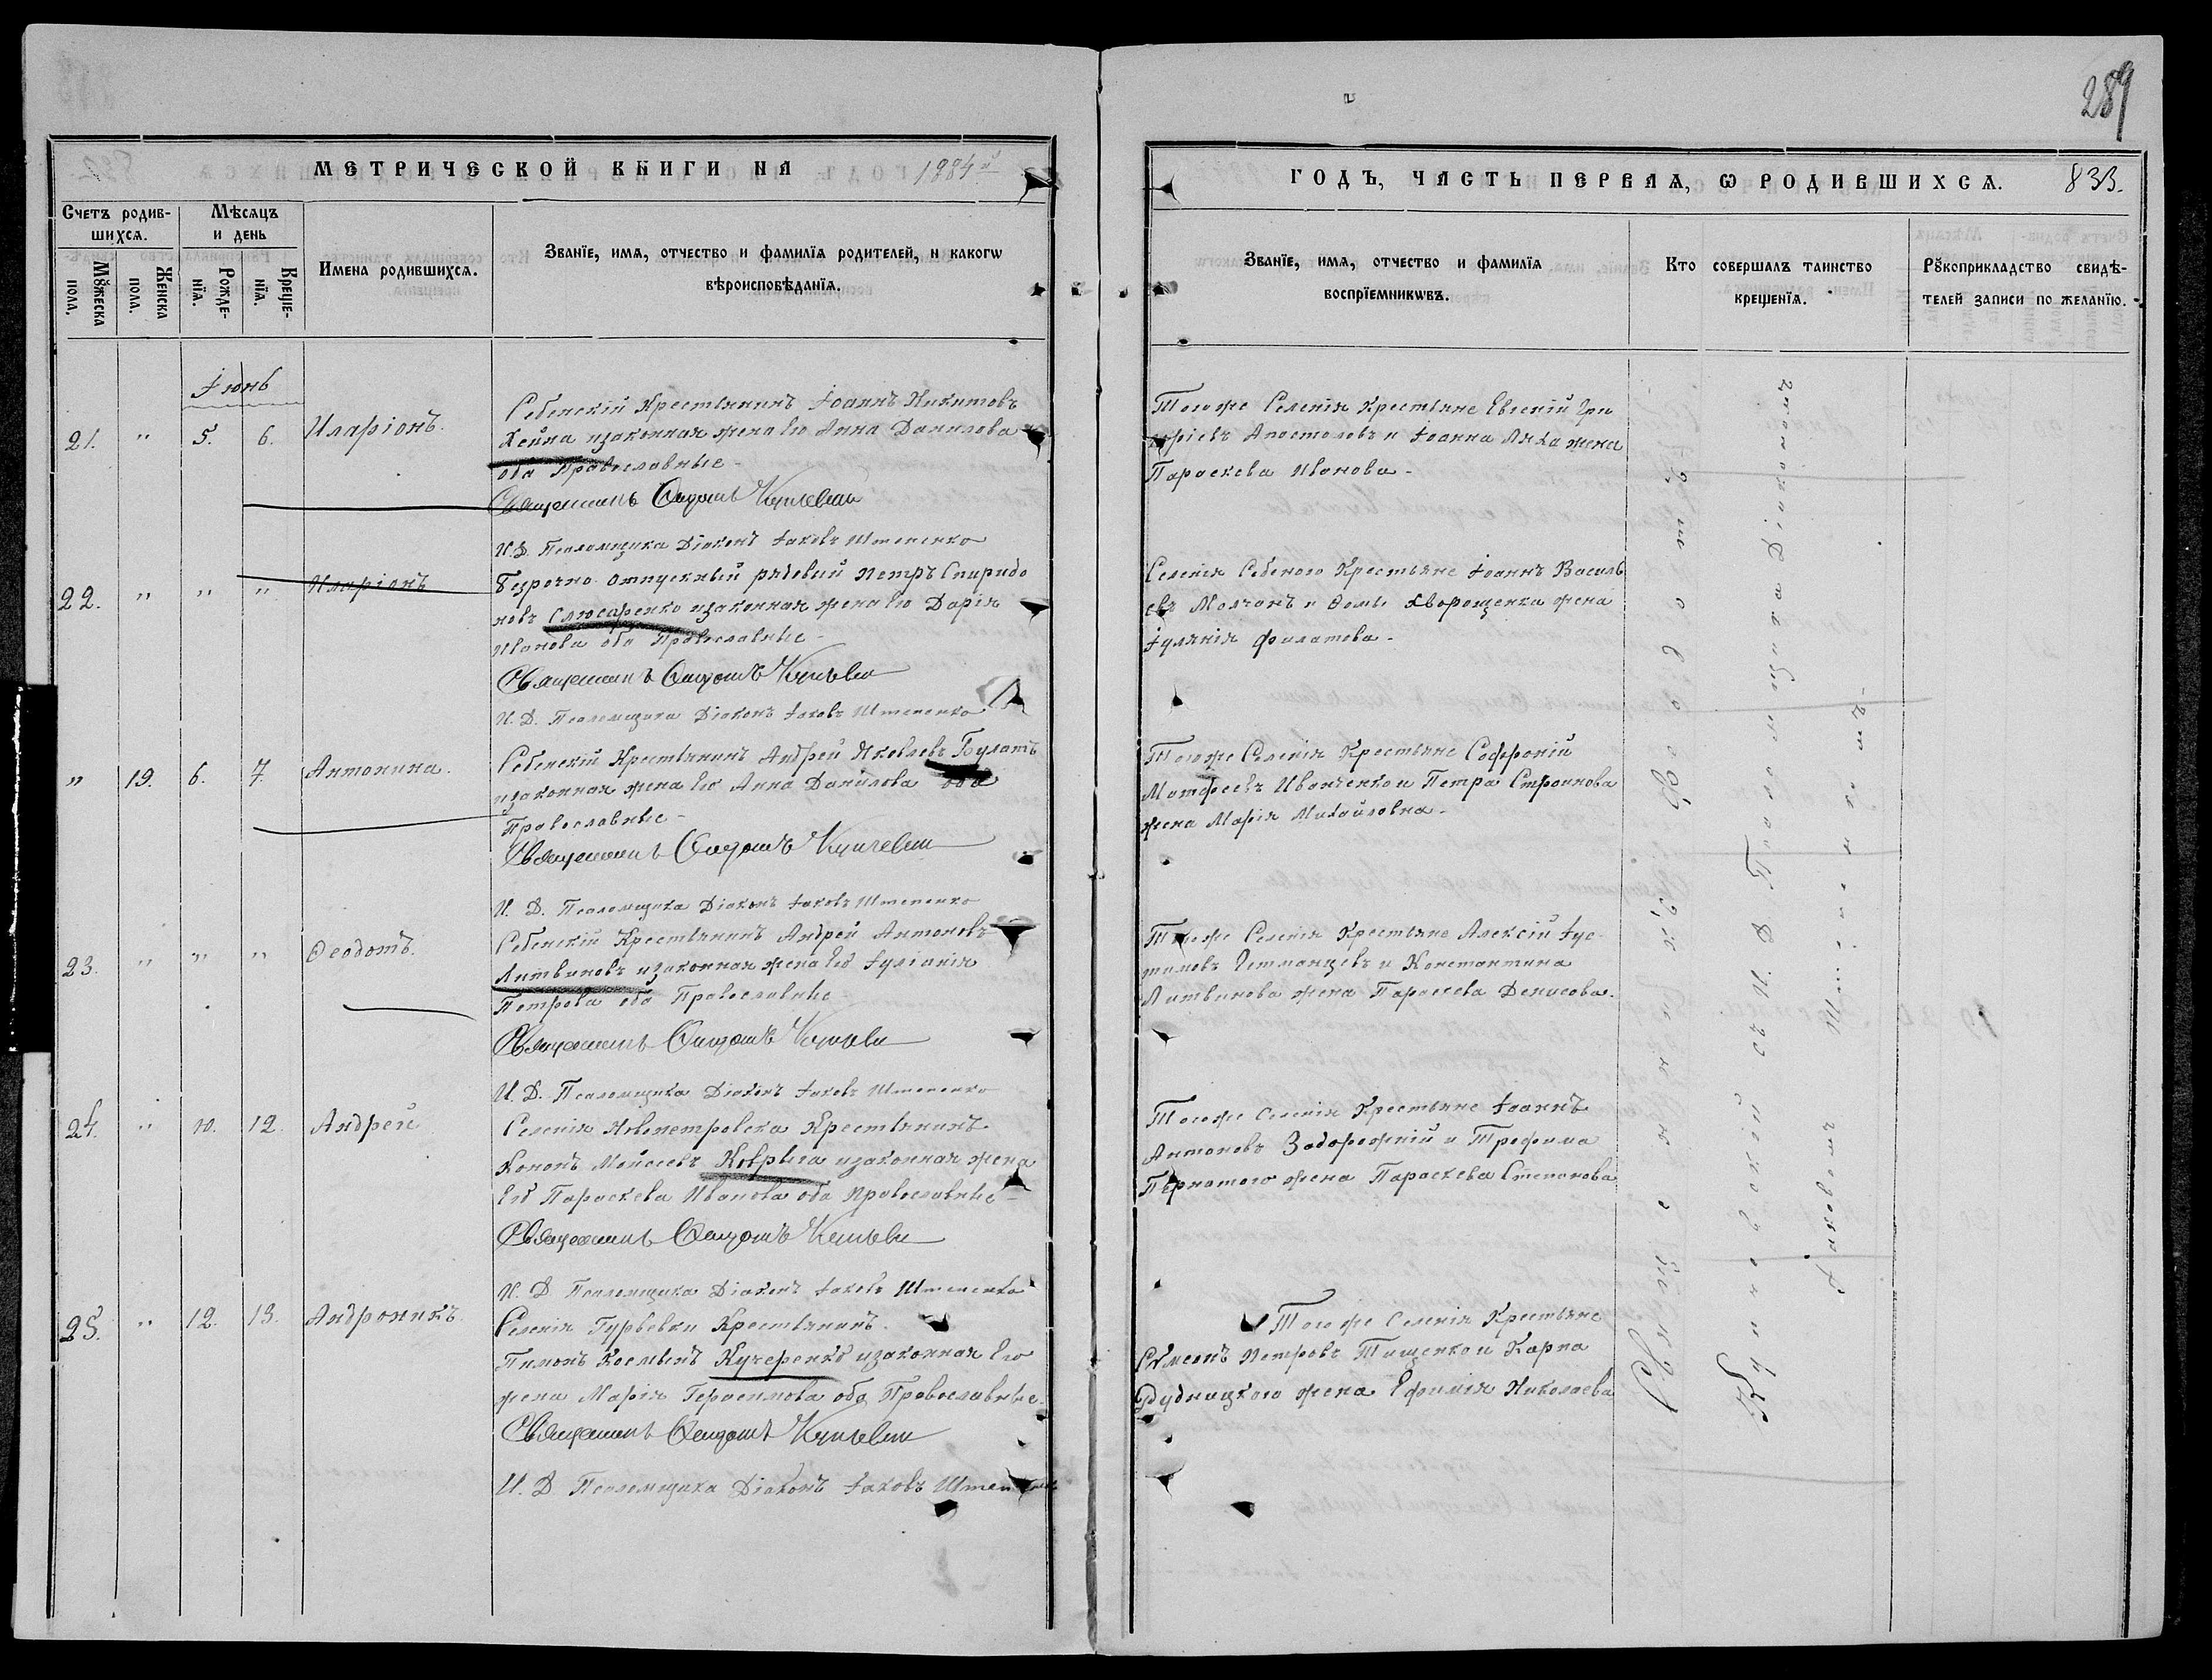 289
МЕТРИЧЕСКОЙ КНИГИ НА 1884й
ГОДЪ, ЧАСТЬ ПЕРВАѦ, Ѡ РОДИВШИХСѦ. 833.
Счетъ родив-
шихсѧ.
Мѣсѧцъ
и день
Мꙋжеска
пола.
Женска
пола.
Рожде-
нїѧ.
Креще-
нїѧ.
Имена родившихсѧ.
Званїе, имѧ, отчество и фамилїѧ родителей, и какогѡ
вѣроисповѣданїѧ.
Званїе, имѧ, отчество и фамилїѧ
воспрїемникѡвъ.
Кто совершалъ таинство
крещенїѧ.
Рꙋкоприкладство свидѣ-
телей записи по желанїю.
Іюнь
21. " 5. 6. Иларіонъ.
Себенскій Крестьянинъ Іоаннъ Никитовъ
Хейна изаконная жена Его Анна Данилова
оба Православные -
Священникъ
И.Д. Псаломщика Діаконъ Іаковъ Штепенко
Тогоже Селенія Крестьяне Евсекій Гри
горіевъ Апостоловъ и Іоанна Ляха жена
Параскева Иванова -
22. " " " Иларіонъ
Безрочно отпускный рядовый Петръ Спиридо
новъ Слюсаренко изаконная жена Его Дарія
Иванова оба Православные -
Священникъ
И.Д. Псаломщика Діаконъ Іаковъ Штепенко
Селенія Себеного Крестьяне Іоаннъ Василь
евъ Молчанъ и Ѳомы Хворощенка жена
Іуліанія Филатова -
" 19. 6. 7. Антонина.
Себенскій Крестьянинъ Андрей Яковлевъ Булатъ
изаконная жена Его Анна Данилова оба
Православные -
Священникъ
И. Д. Псаломщика Діаконъ Іаковъ Штепенко
Тогоже Селенія Крестьяне Софроній
Матфеевъ Иванченко и Петра Строинова
жена Марія Михайловна -
23. " " " Ѳеодотъ.
Себенскій Крестьянинъ Андрей Антоновъ
Литвиновъ изаконная жена Его Іуліанія
Петрова оба Православные
Священникъ
И. Д. Псаломщика Діаконъ Іаковъ Штепенко
Тогоже Селенія Крестьяне Алексій Іус
тиновъ Гетманцевъ и Константина
Литвинова жена Параскева Денисова.
24. " 10. 12. Андрей
Селенія Новопетровска Крестьянинъ
Кононъ Мойсеевъ Коврыга изаконная жена
Его Параскева Иванова оба Православные -
Священникъ
И. Д. Псаломщика Діаконъ Іаковъ Штепенко
Тогоже Селенія Крестьяне Іоаннъ
Антоновъ Задорожній и Трофима
Пернатого жена Параскева Степанова
25. " 12. 13. Андроникъ.
Селенія Гурьевки Крестьянинъ
Пимонъ Космынъ Кучеренко изаконная Его
жена Марія Герасимова оба Православные.
Священникъ
И. Д. Псаломщика Діаконъ Іаковъ
Тогоже Селенія Крестьяне
Сѵмеонъ Петровъ Тищенко и Карпа
Рудницкого жена Ефимія Николаева
съ И. Д. Псаломщика Діакономъ
Іаковомъ